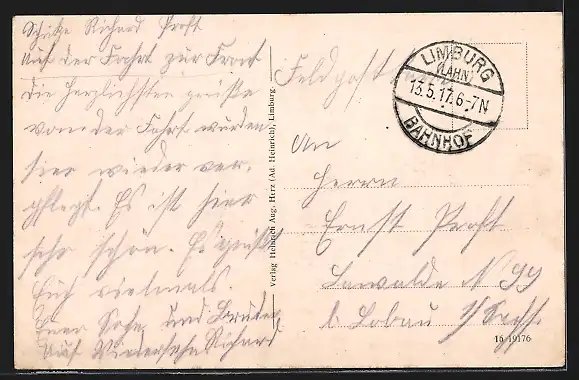 Schütze Richard Proft
Auf der Fahrt zur Front
die herzlichsten Grüße
von der Fahrt wurden
hier wieder ver-
pflegt. Es ist hier
sehr schön. Es grüßt
Euch vielmals
Euer Sohn und Bruder
Auf Wiedersehn Richard
Verlag Heinrich Aug. Herz (Ad. Heinrich), Limburg.
Feldpost
LIMBURG
(LAHN)
13.5.17.6-7N
BAHNHOF
An
Herrn
Ernst Proft
Lawalde N 99
b. Löbau i/Sachs.
16 19176